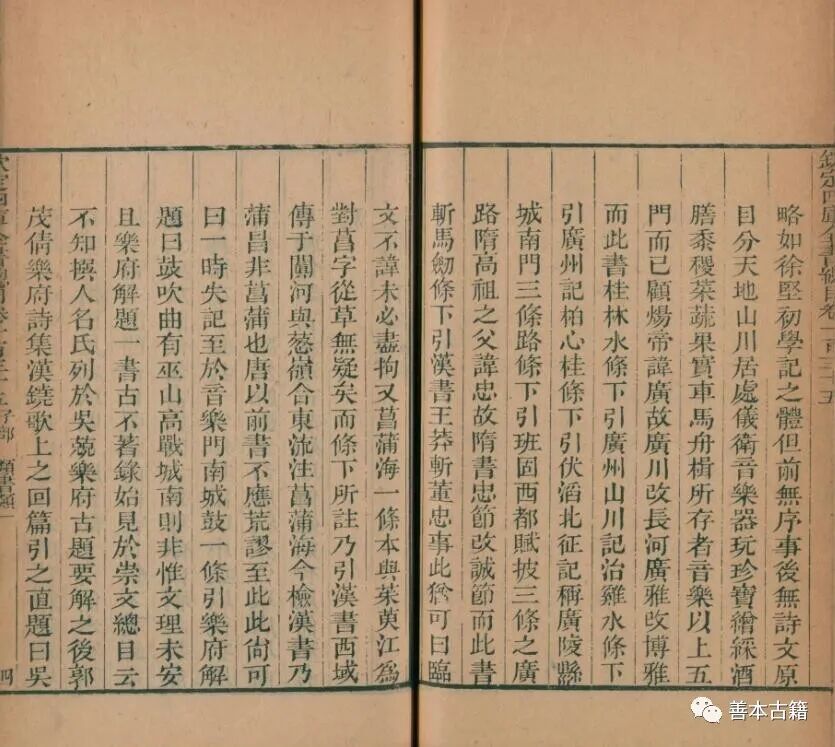 欽定四庫全書總目卷一百三十五
略如徐堅初學記之體但前無序事後無詩文原
目分天地山川居處儀衛音樂器玩珍寶繒綵酒
膳黍稷菜蔬果實車馬舟楫所存者音樂以上五
門而已顧煬帝諱廣故廣川改長河廣雅改博雅
而此書桂林水條下引廣州山川記治雞水條下
引廣州記柏心桂條下引伏滔北征記稱廣陵縣
城南門三條路條下引班固西都賦披三條之廣
路隋高祖之父諱忠故隋書忠節改誠節而此書
斬馬劒條下引漢書王莽斬董忠事此猶可曰臨
文不諱未必盡拘又菖蒲海一條本與茱萸江為
對菖字從草無疑矣而條下所註乃引漢書西域
傳于闐河與葱嶺合東流注菖蒲海今檢漢書乃
蒲昌非菖蒲也唐以前書不應荒謬至此此尙可
曰一時失記至於音樂門南城鼓一條引樂府解
題曰鼓吹曲有巫山高戰城南則非惟文理未安
且樂府解題一書古不著錄始見於崇文總目云
不知撰人名氏列於吳兢樂府古題要解之後郭
茂倩樂府詩集漢鐃歌上之回篇引之直題曰吳
欽定四庫全書總目卷一百三十五 子部 類書類一 四
善本古籍